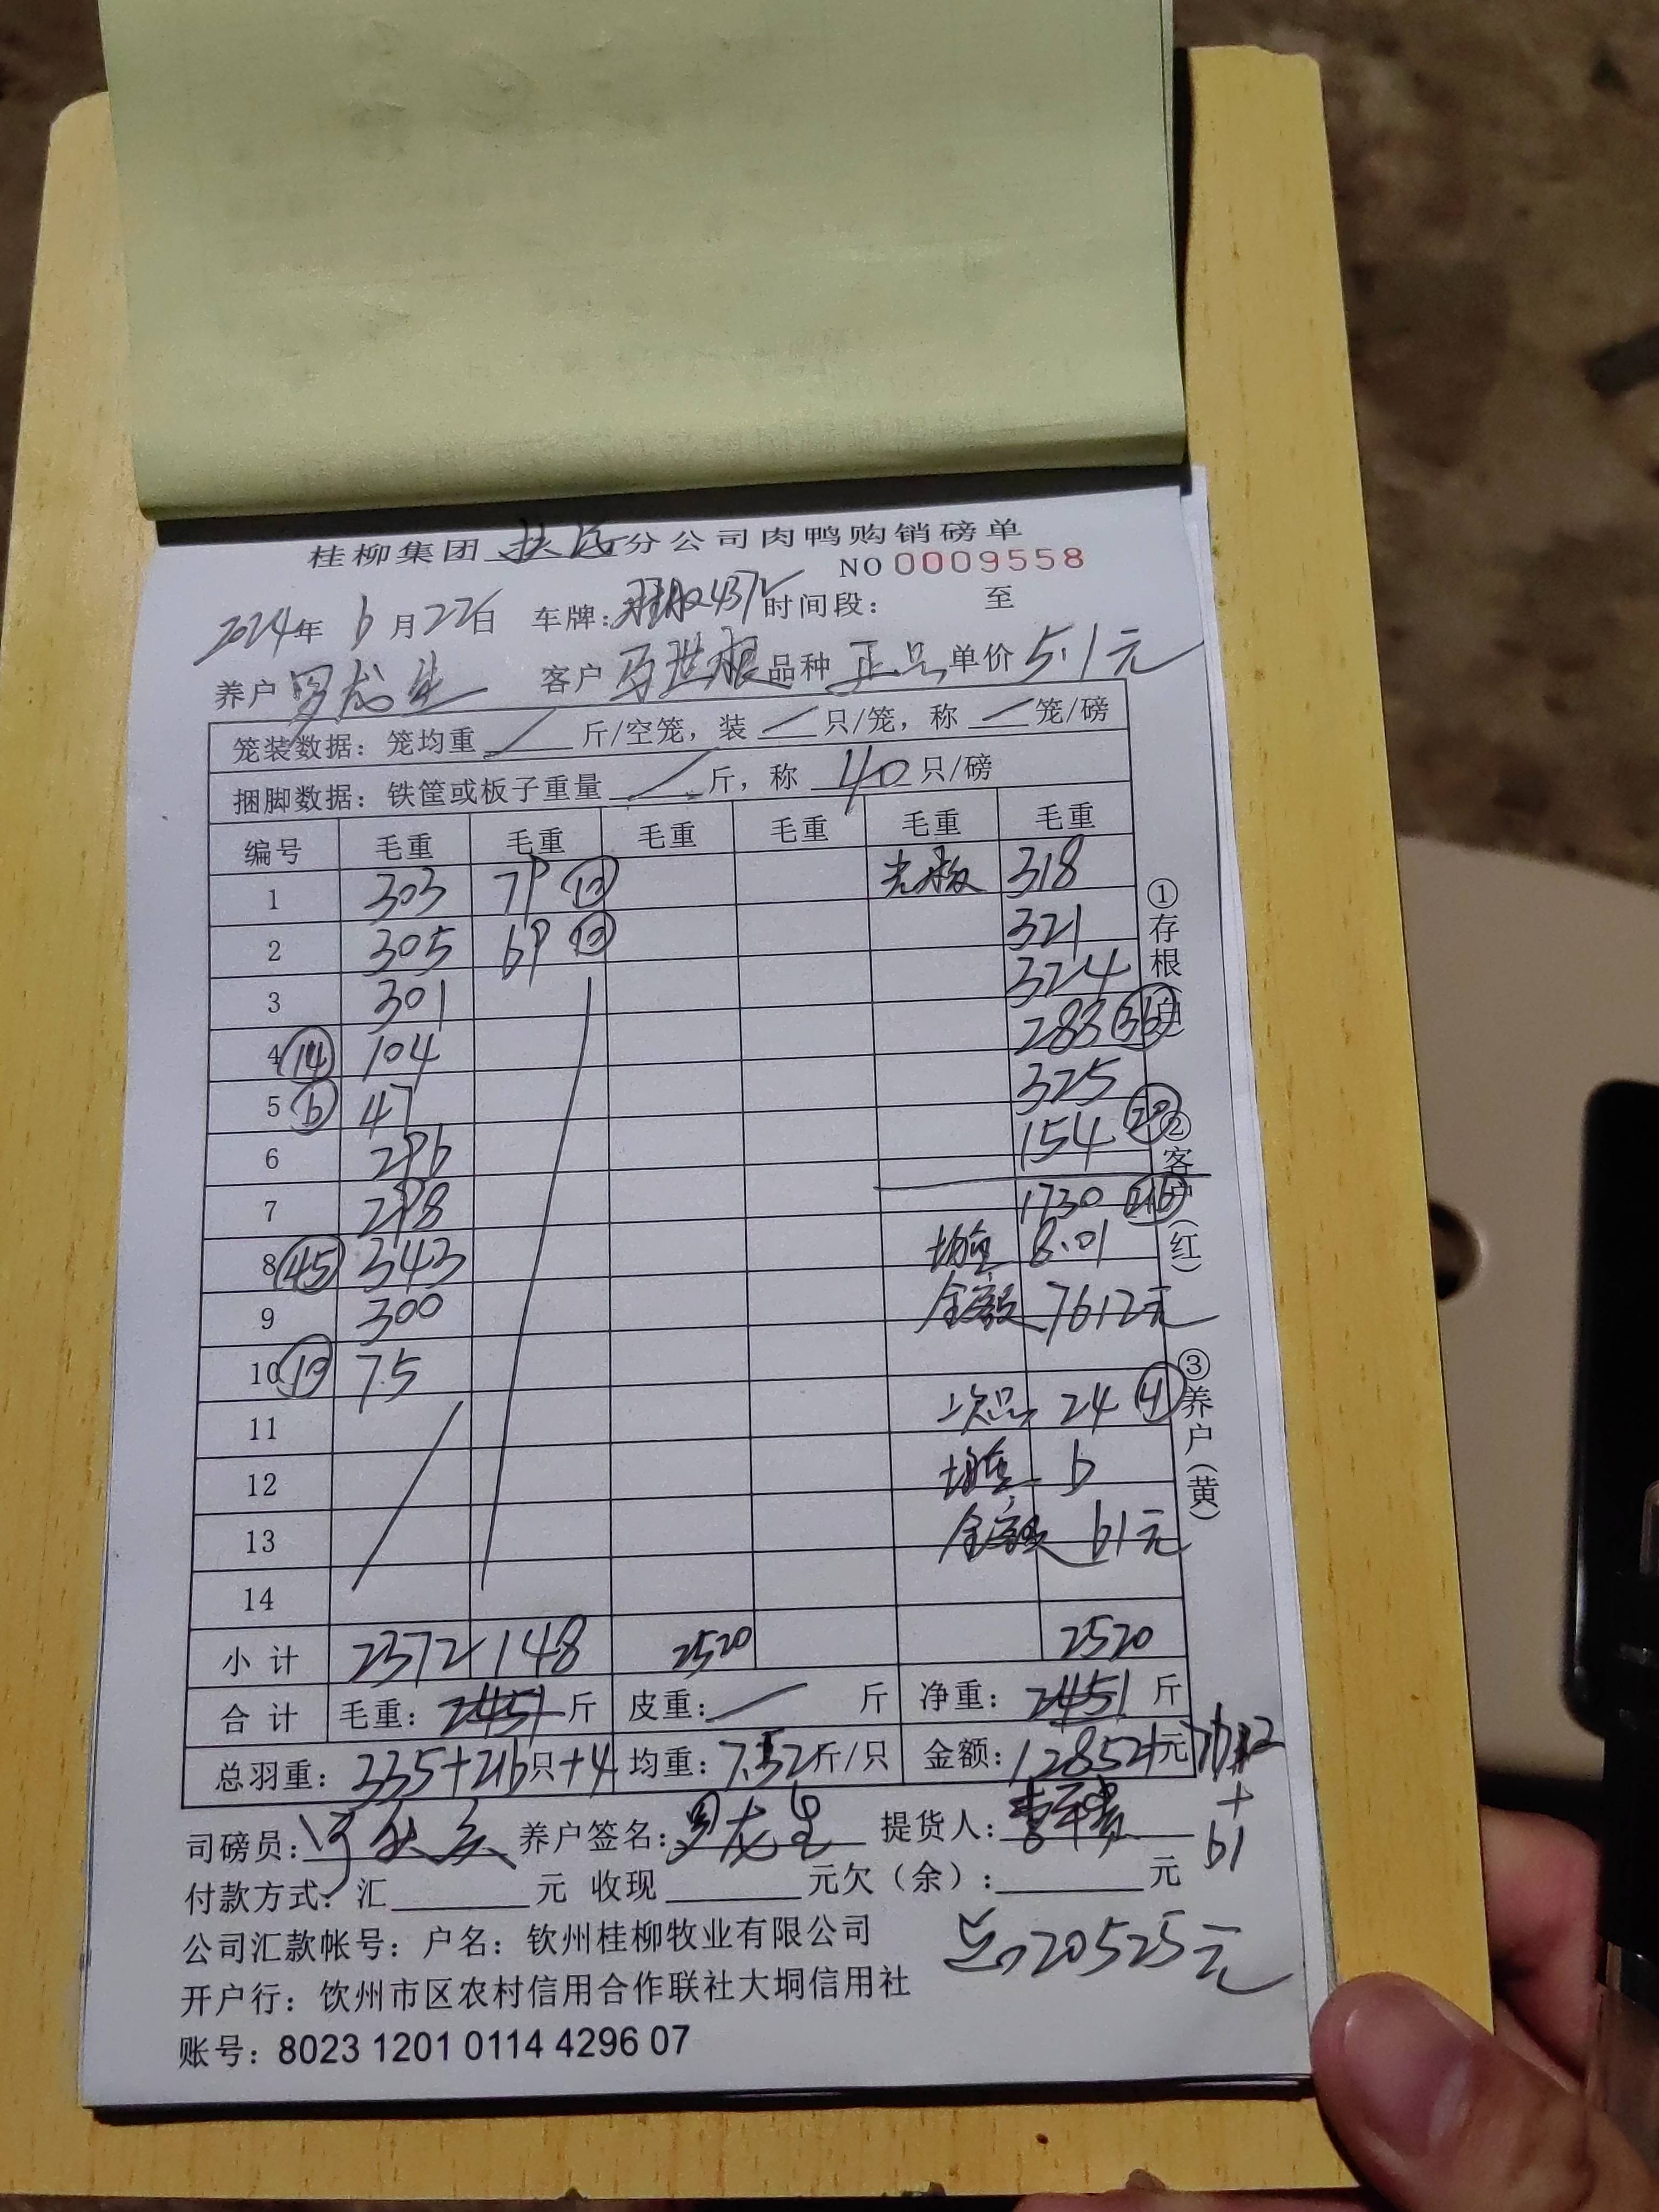 桂柳集团 分公司肉鸭购销磅单
NO 0009558
2024年 6月22日 车牌: 时间段: 至
养户 罗龙生 客户 马世根 品种 正品 单价 5.1元
笼装数据: 笼均重 斤/空笼, 装 只/笼, 称 笼/磅
捆脚数据: 铁筐或板子重量 斤, 称 40 只/磅
编号 毛重 毛重 毛重 毛重 毛重 毛重
1 303 79 ⑩ 光板 318
2 305 69 ⑩ 321
3 301 324
4 ⑭ 104 288 ㊱
5 ⑥ 47 325
6 296 154 ⑳
7 298 1730 216
8 ㊺ 343 均重 8.01
9 300 金额 7612元
10 ⑩ 75
11 次品 24 ④
12 均重 6
13 金额 61元
14
小计 2372 148 2520 2520
合计 毛重: 2451 斤 皮重: 斤 净重: 2451 斤
总羽重: 335+216只+4 均重: 7.52斤/只 金额: 12852元
+
61
司磅员: 养户签名: 罗龙生 提货人:
付款方式: 汇 元 收现 元欠(余): 元
公司汇款帐号: 户名: 钦州桂柳牧业有限公司
总20525元
开户行: 饮州市区农村信用合作联社大垌信用社
账号: 8023 1201 0114 4296 07
①存根(白)
②客户(红)
③养户(黄)